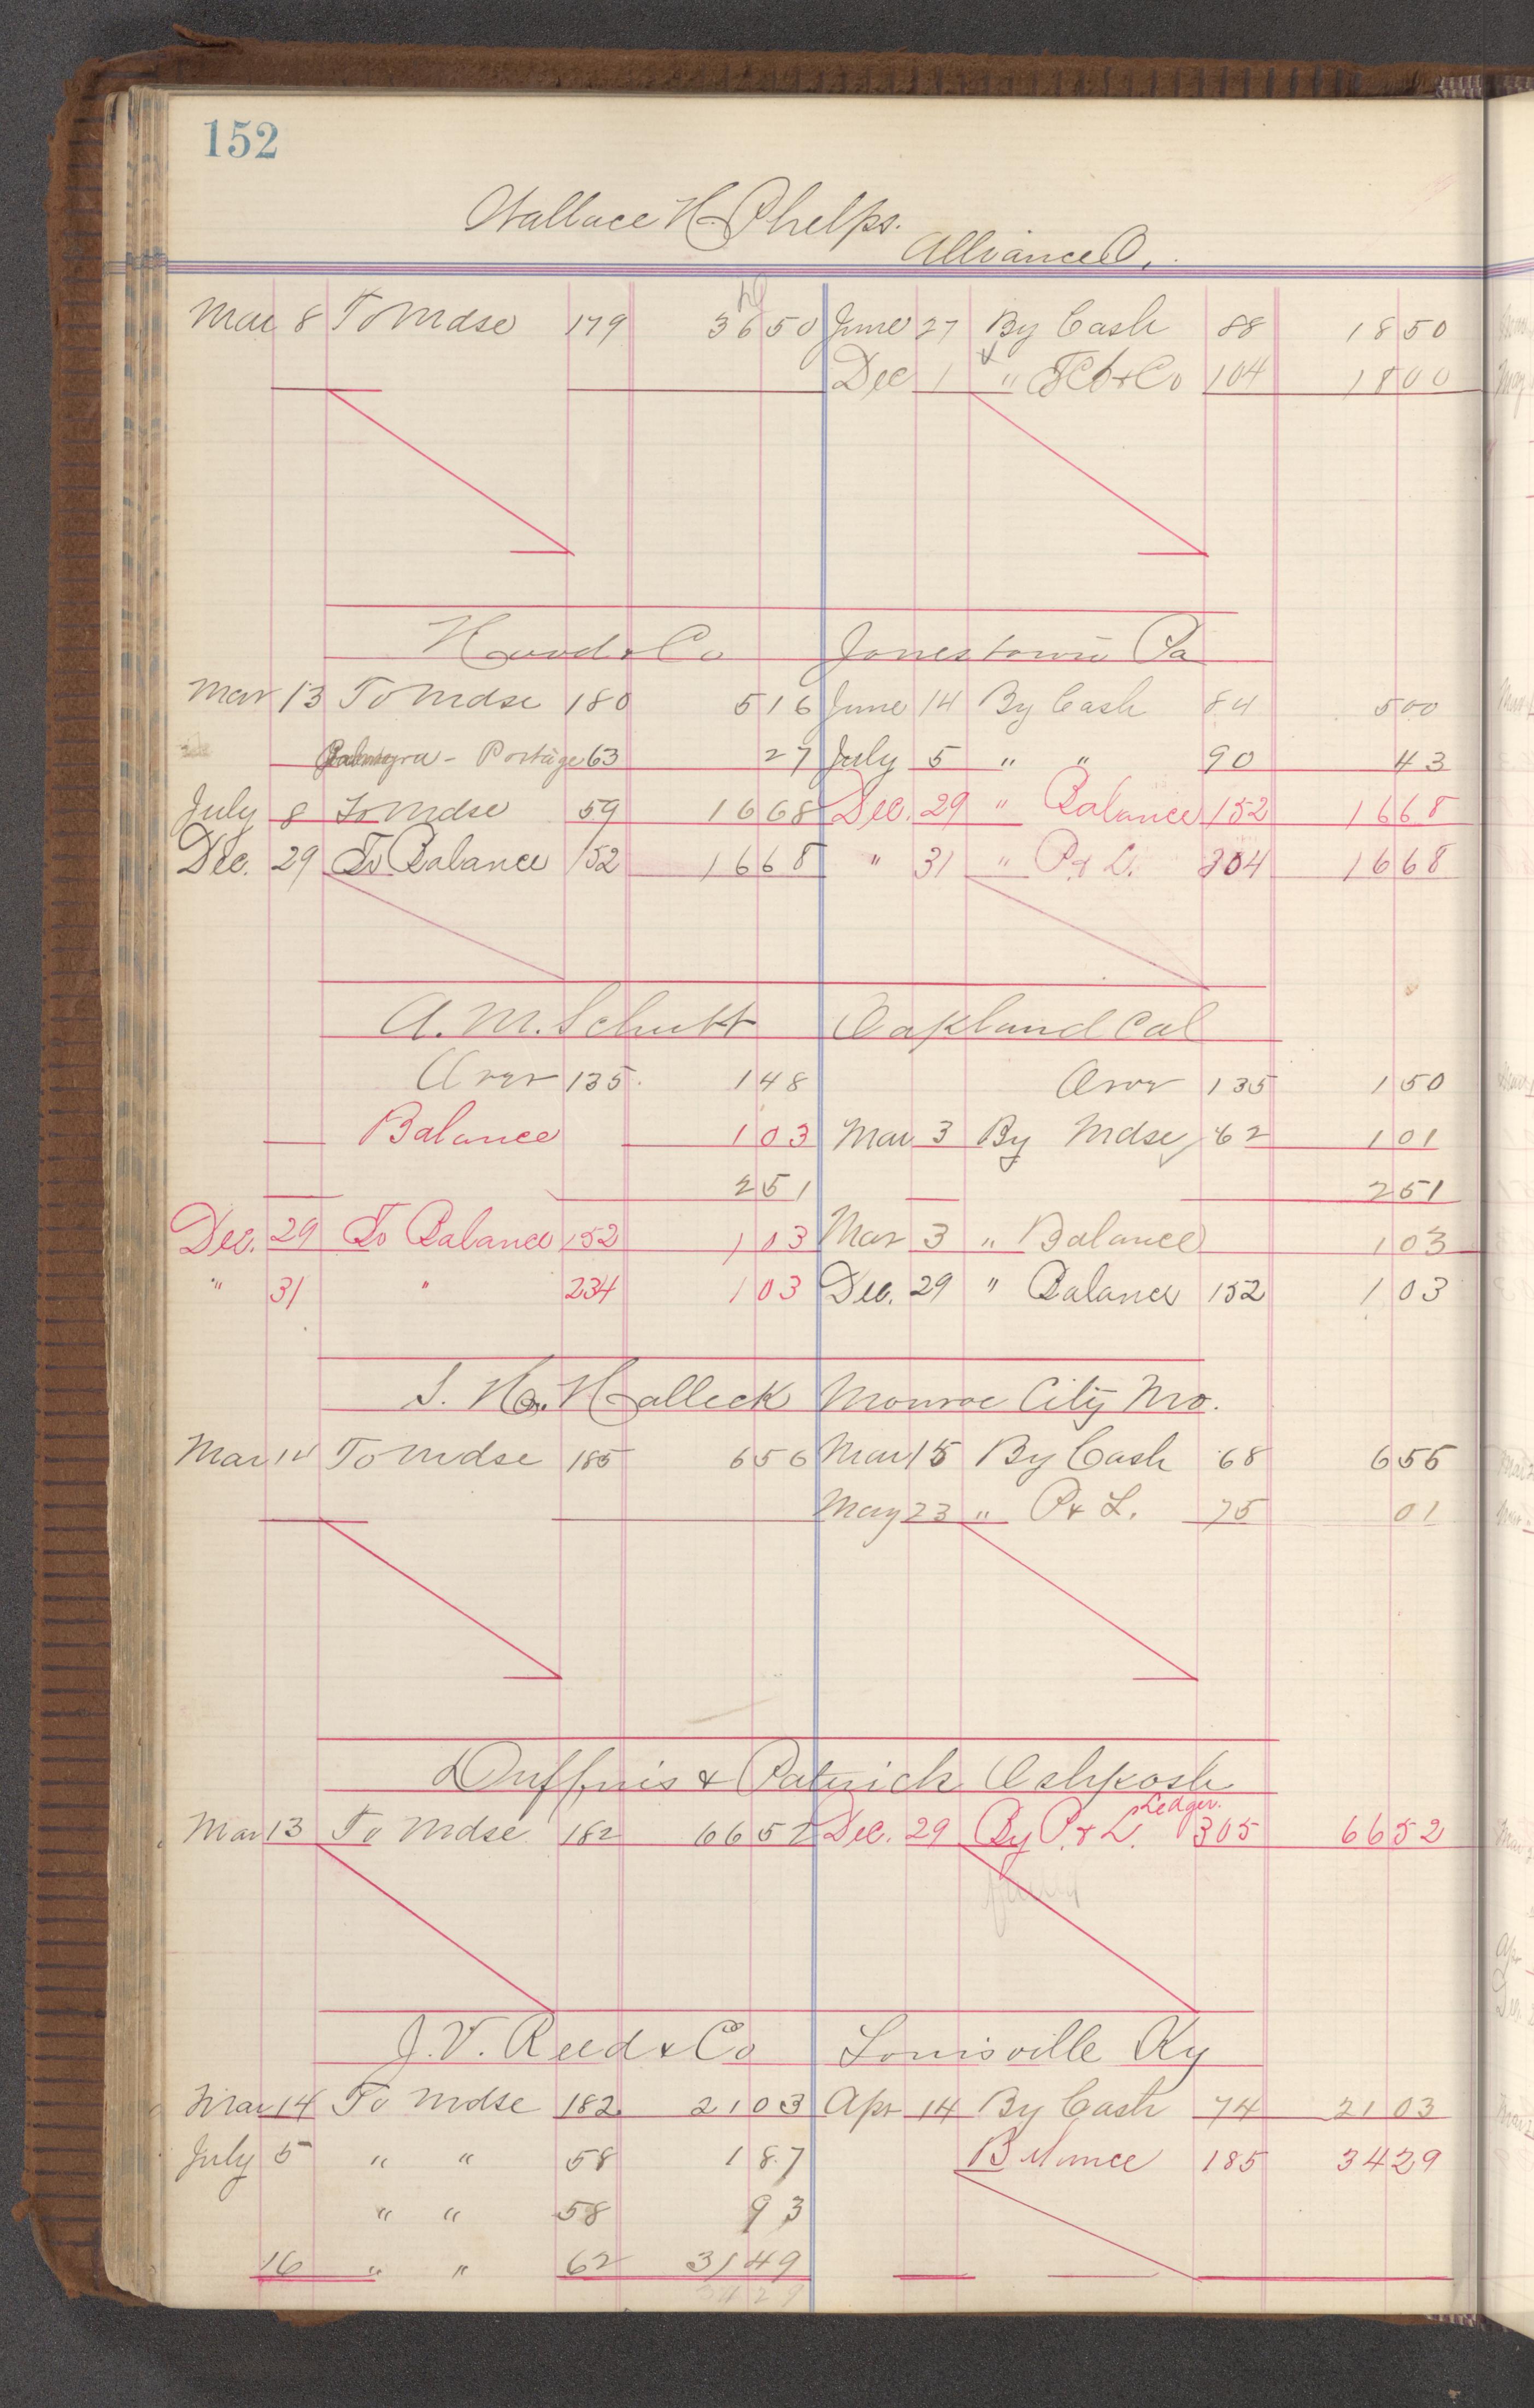 152
Wallace H Phelps.
Alliance O.
Mar 8 To Mdse 179 36 50 June 27 By Cash 88 18 50
Dec 1 " & Co 104 18 00
& Co Jonestown Pa
Mar 13 To Mdse 180 5 16 June 14 By Cash 84 5 00
- Postage 63 27 July 5 " " 90 43
July 8 To Mdse 59 16 68 Dec. 29 " Balance 152 16 68
Dec. 29 To Balance 152 16 68 " 31 " P & L. 304 16 68
A. M. Schutt Oakland Cal
Over 135. 1 48 Over 135 1 50
Balance 1 03 Mar 3 By Mdse 62 1 01
2 51 2 51
Dec. 29 To Balance 152 1 03 Mar 3 " Balance 1 03
" 31 " 234 1 03 Dec. 29 " Balance 152 1 03
Halleck Monroe City Mo.
Mar 14 To Mdse 185 6 56 Mar 15 By Cash 68 6 55
May 23 " P & L. 75 01
& Patrick Oshkosh
Mar 13 To Mdse 182 66 52 Dec. 29 By P. & L. Ledger. 305 66 52
J. V. Reed & Co Louisville Ky
Mar 14 To Mdse 182 21 03 Apr 14 By Cash 74 21 03
July 5 " " 58 1 87 Balance 185 34 29
" " 58 93
16 " " 62 31 49
34 29